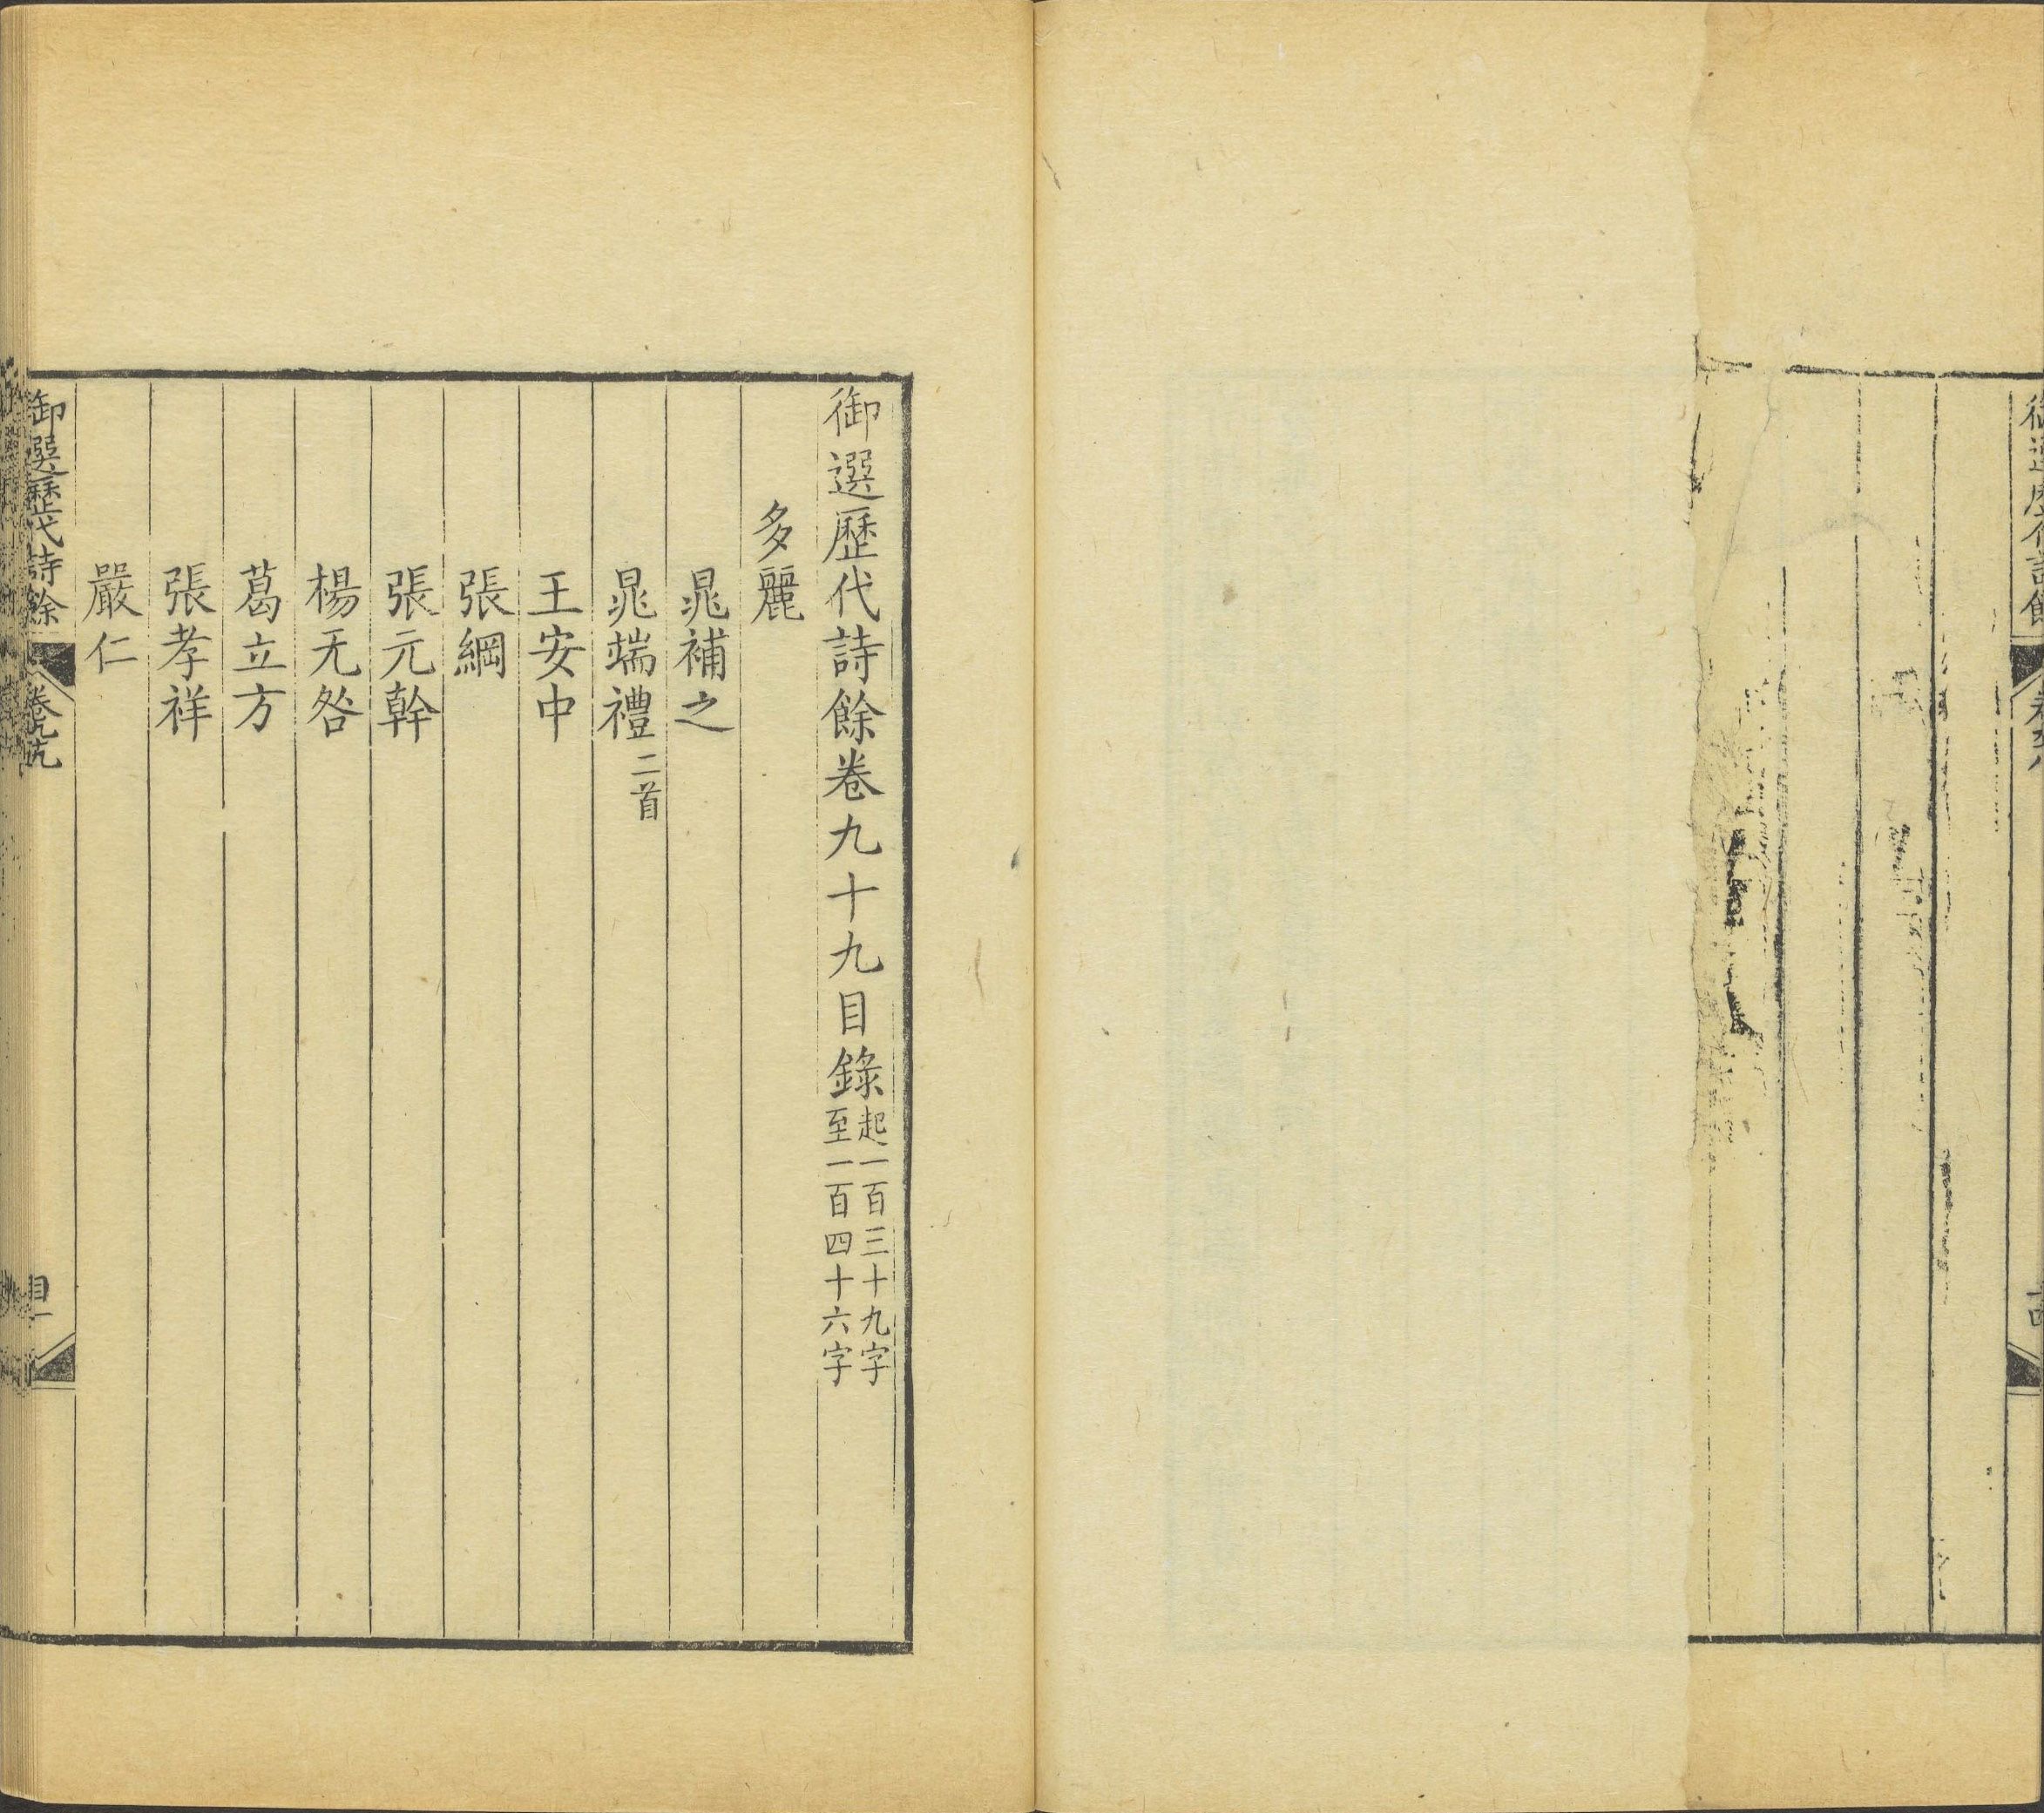 御選歷代詩餘卷九十九目錄起一百三十九字
至一百四十六字
多麗
晁補之
晁端禮二首
王安中
張綱
張元幹
楊无咎
葛立方
張孝祥
嚴仁
御選歷代詩餘
卷九十九
目一